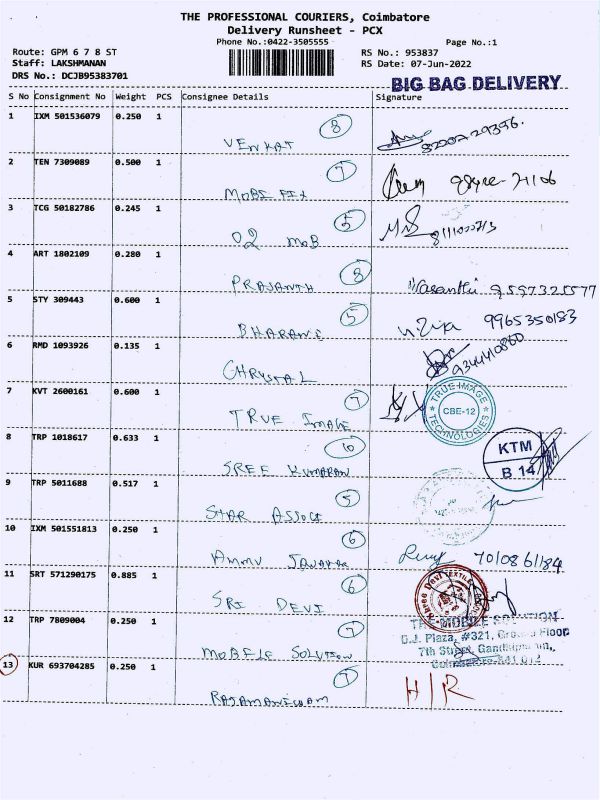 THE PROFESSIONAL COURIERS, Coimbatore
Delivery Runsheet - PCX
Phone No.:0422-3505555
Page No.:1
Route: GPM 6 7 8 ST
RS No.: 953837
Staff: LAKSHMANAN
RS Date: 07-Jun-2022
DRS No.: DCJB95383701
BIG BAG DELIVERY
S No Consignment No Weight PCS Consignee Details Signature
1 IXM 501536079 0.250 1
8
VENKAT
2 TEN 7309089 0.500 1
7
MOBI FIX
3 TCG 50182786 0.245 1
5
O2 MOB
4 ART 1802109 0.280 1
8
PRASANTH Vasanthi 9597325577
5 STY 309443 0.600 1
5 9965350183
BHARANI
6 RMD 1093926 0.135 1
9344410860
CHRYSTAL
7 KVT 2600161 0.600 1
7 TRUE IMAGE
CBE-12
TECHNOLOGIES
TRUE IMAGE
8 TRP 1018617 0.633 1
6 KTM
B 14
SREE KUMARAN
9 TRP 5011688 0.517 1
5
STAR ASSOCI
10 IXM 501551813 0.250 1
6
AMMU
11 SRT 571290175 0.885 1
6
SRI DEVI
12 TRP 7809004 0.250 1
7 THE MOBILE SOLUTION
D.J. Plaza, #321, Ground Floor
7th Street,
MOBILE SOLUTION
13 KUR 693704285 0.250 1
7
H/R
RAJAMANICKAM